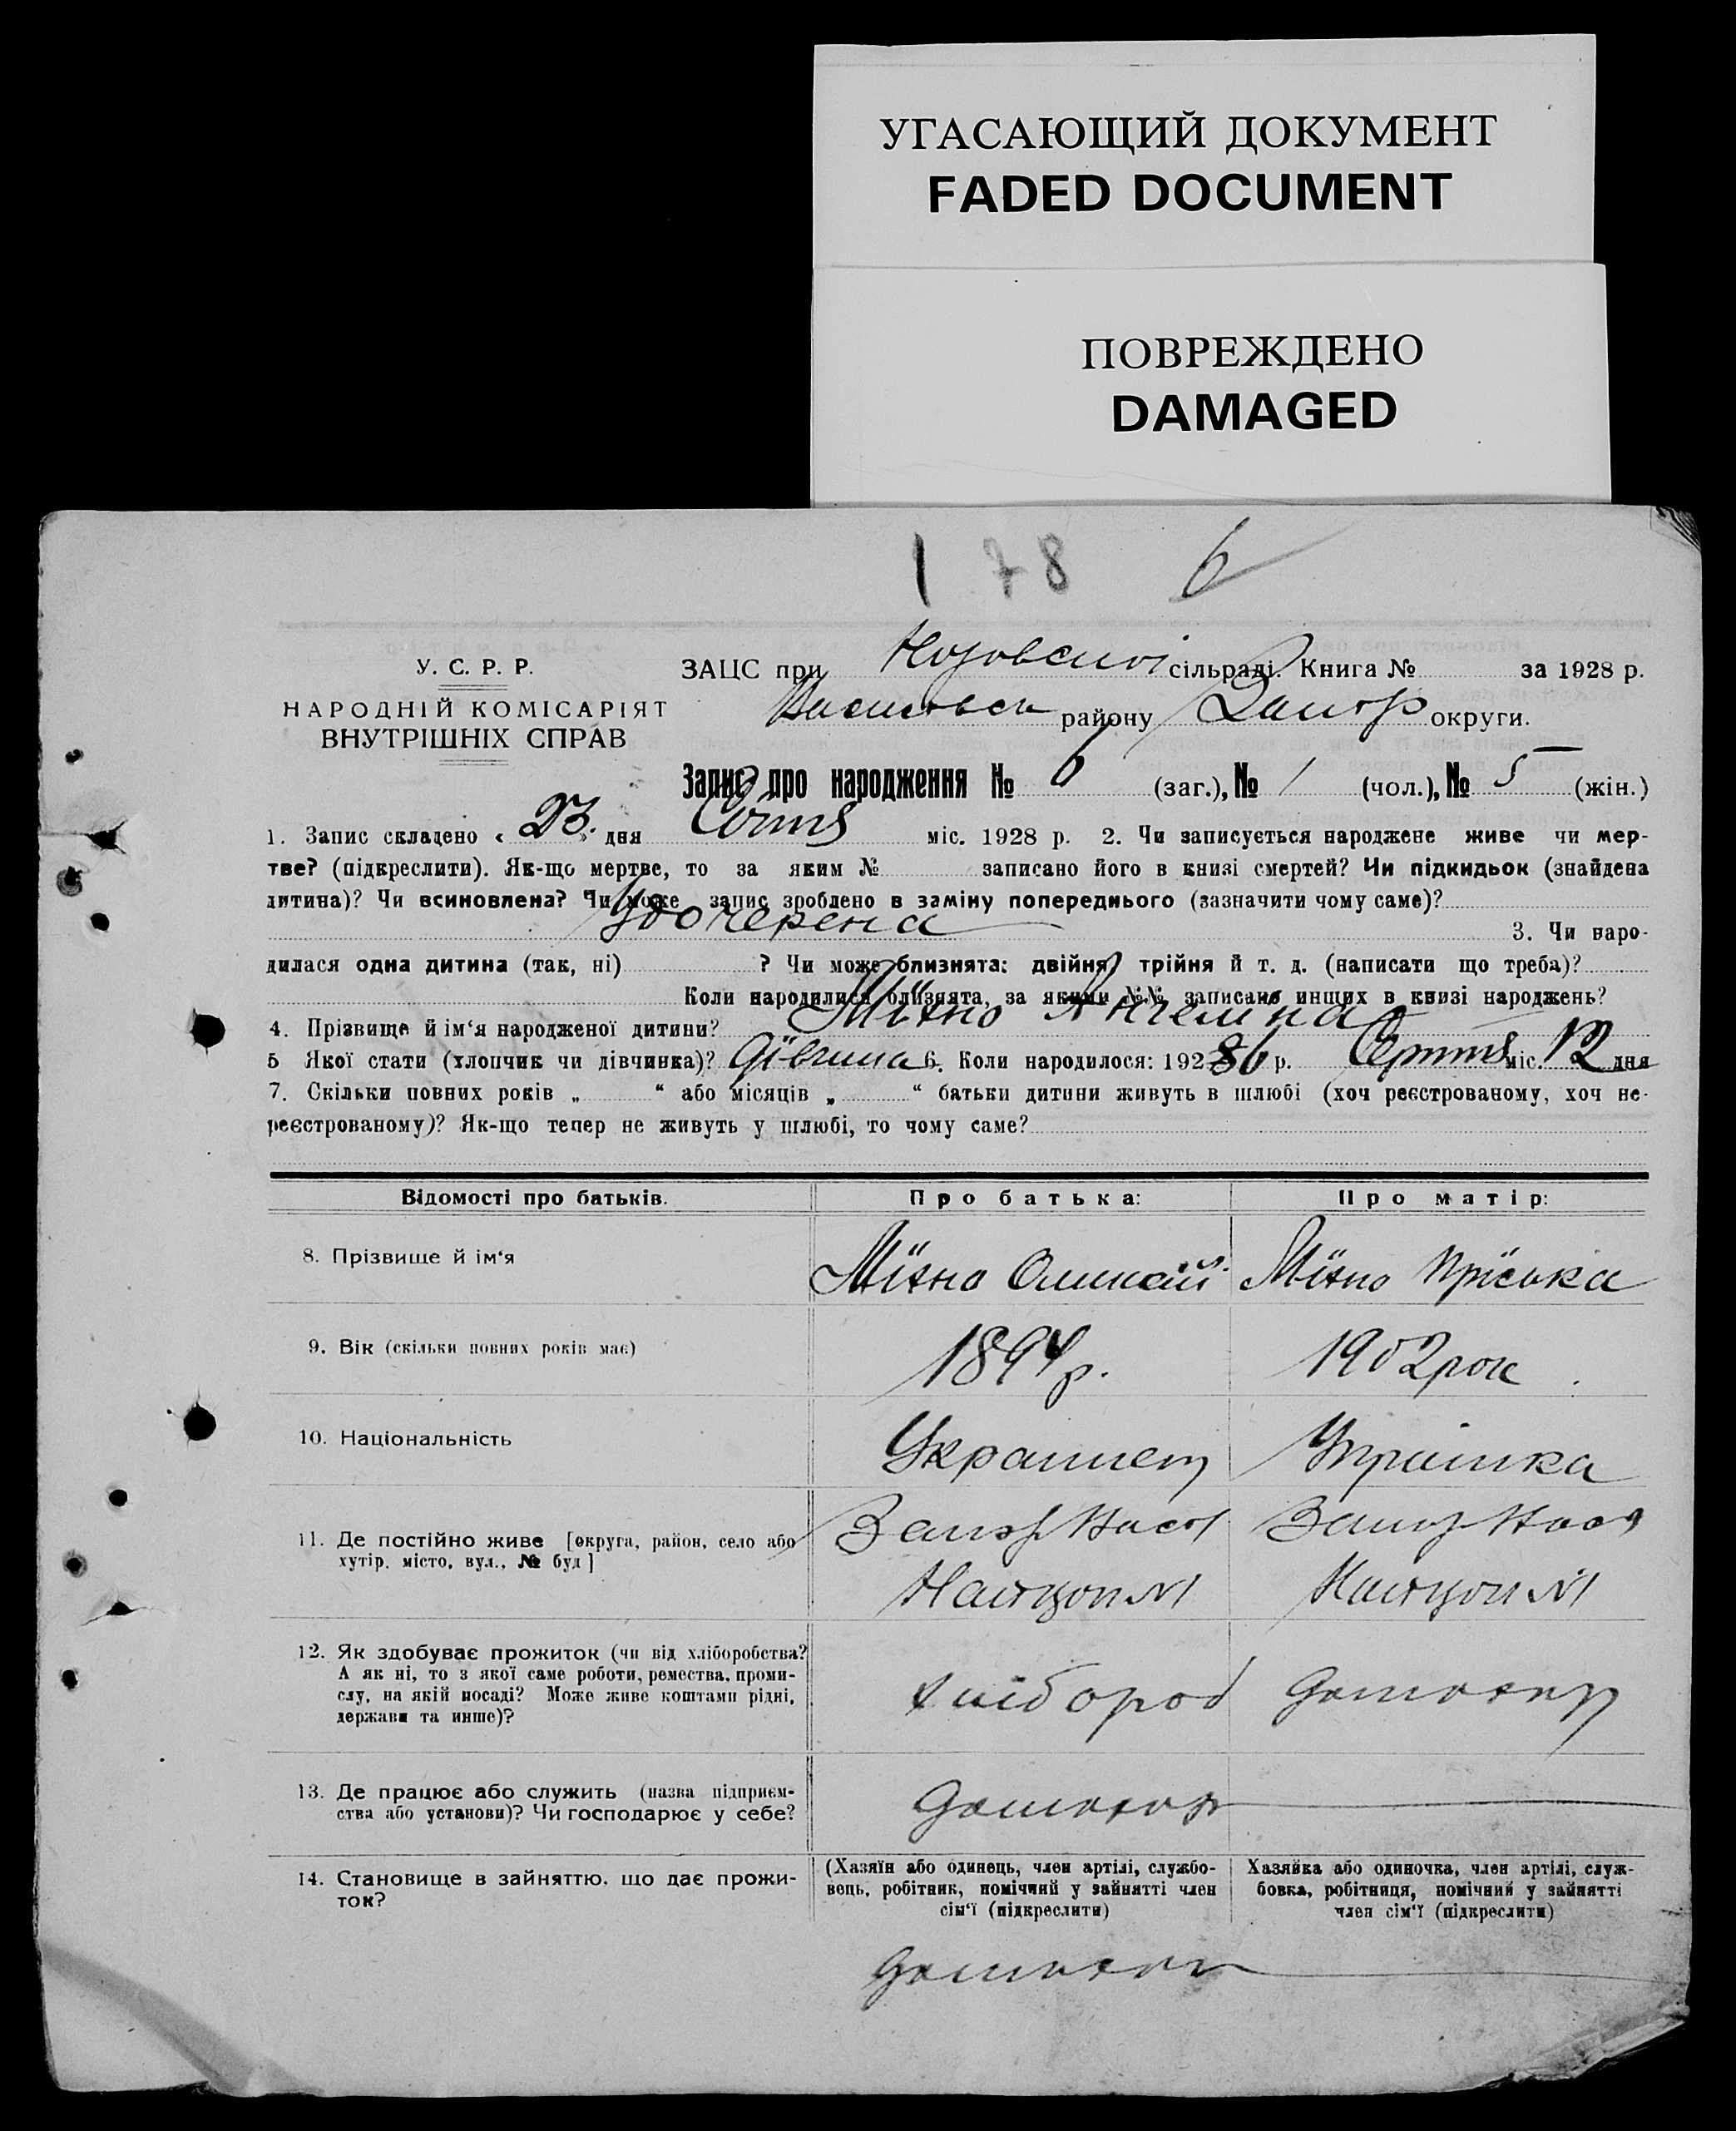 УГАСАЮЩИЙ ДОКУМЕНТ
FADED DOCUMENT
ПОВРЕЖДЕНО
DAMAGED
1 78 6
У. С. Р. Р.
НАРОДНІЙ КОМІСАРІЯТ
ВНУТРІШНІХ СПРАВ
ЗАЦС при сільраді. Книга № за 1928 р.
району округи.
Запис про народження № 6 (заг.), № / (чол.), № 5 (жін.)
1. Запис складено « 23. » дня міс. 1928 р. 2. Чи записується народжене живе чи мер-
тве? (підкреслити). Як-що мертве, то за яким № записано його в книзі смертей? Чи підкидьок (знайдена
дитина)? Чи всиновлена? Чи може запис зроблено в заміну попереднього (зазначити чому саме)?
Удочерена 3. Чи наро-
дилася одна дитина (так, ні) ? Чи може близнята: двійня, трійня й т. д. (написати що треба)?
Коли народилися близнята, за якими №№ записано инших в книзі народжень?
4. Прізвище й ім‘я народженої дитини? Міхно Ангеліна
5 Якої стати (хлопчик чи дівчинка)? дівчина 6. Коли народилося: 192 р. міс. 12 дня
7. Скільки повних років „ “ або місяців „ “ батьки дитини живуть в шлюбі (хоч реєстрованому, хоч не-
реєстрованому)? Як-що тепер не живуть у шлюбі, то чому саме?
Відомості про батьків. Про батька: Про матір:
8. Прізвище й ім‘я Міхно Міхно Пріська
9. Вік (скільки повних років має) 1894р. 1902рок
10. Національність Украинец Украінка
11. Де постійно живе [округа, район, село або
хутір, місто, вул., № буд]
№1 №1
12. Як здобуває прожиток (чи від хліборобства?
А як ні, то з якої саме роботи, ремества, проми-
слу, на якій посаді? Може живе коштами рідні,
держави та инше)?
хлібороб домохаз
13. Де працює або служить (назва підприєм-
ства або установи)? Чи господарює у себе?
домохаз
14. Становище в зайняттю, що дає прожи-
ток?
(Хазяїн або одинець, член артілі, службо-
вець, робітник, помічний у зайнятті член
сім‘ї (підкреслити)
Хазяйка або одиночка, член артілі, служ-
бовка, робітниця, помічний у зайнятті
член сім‘ї (підкреслити)
домохаз